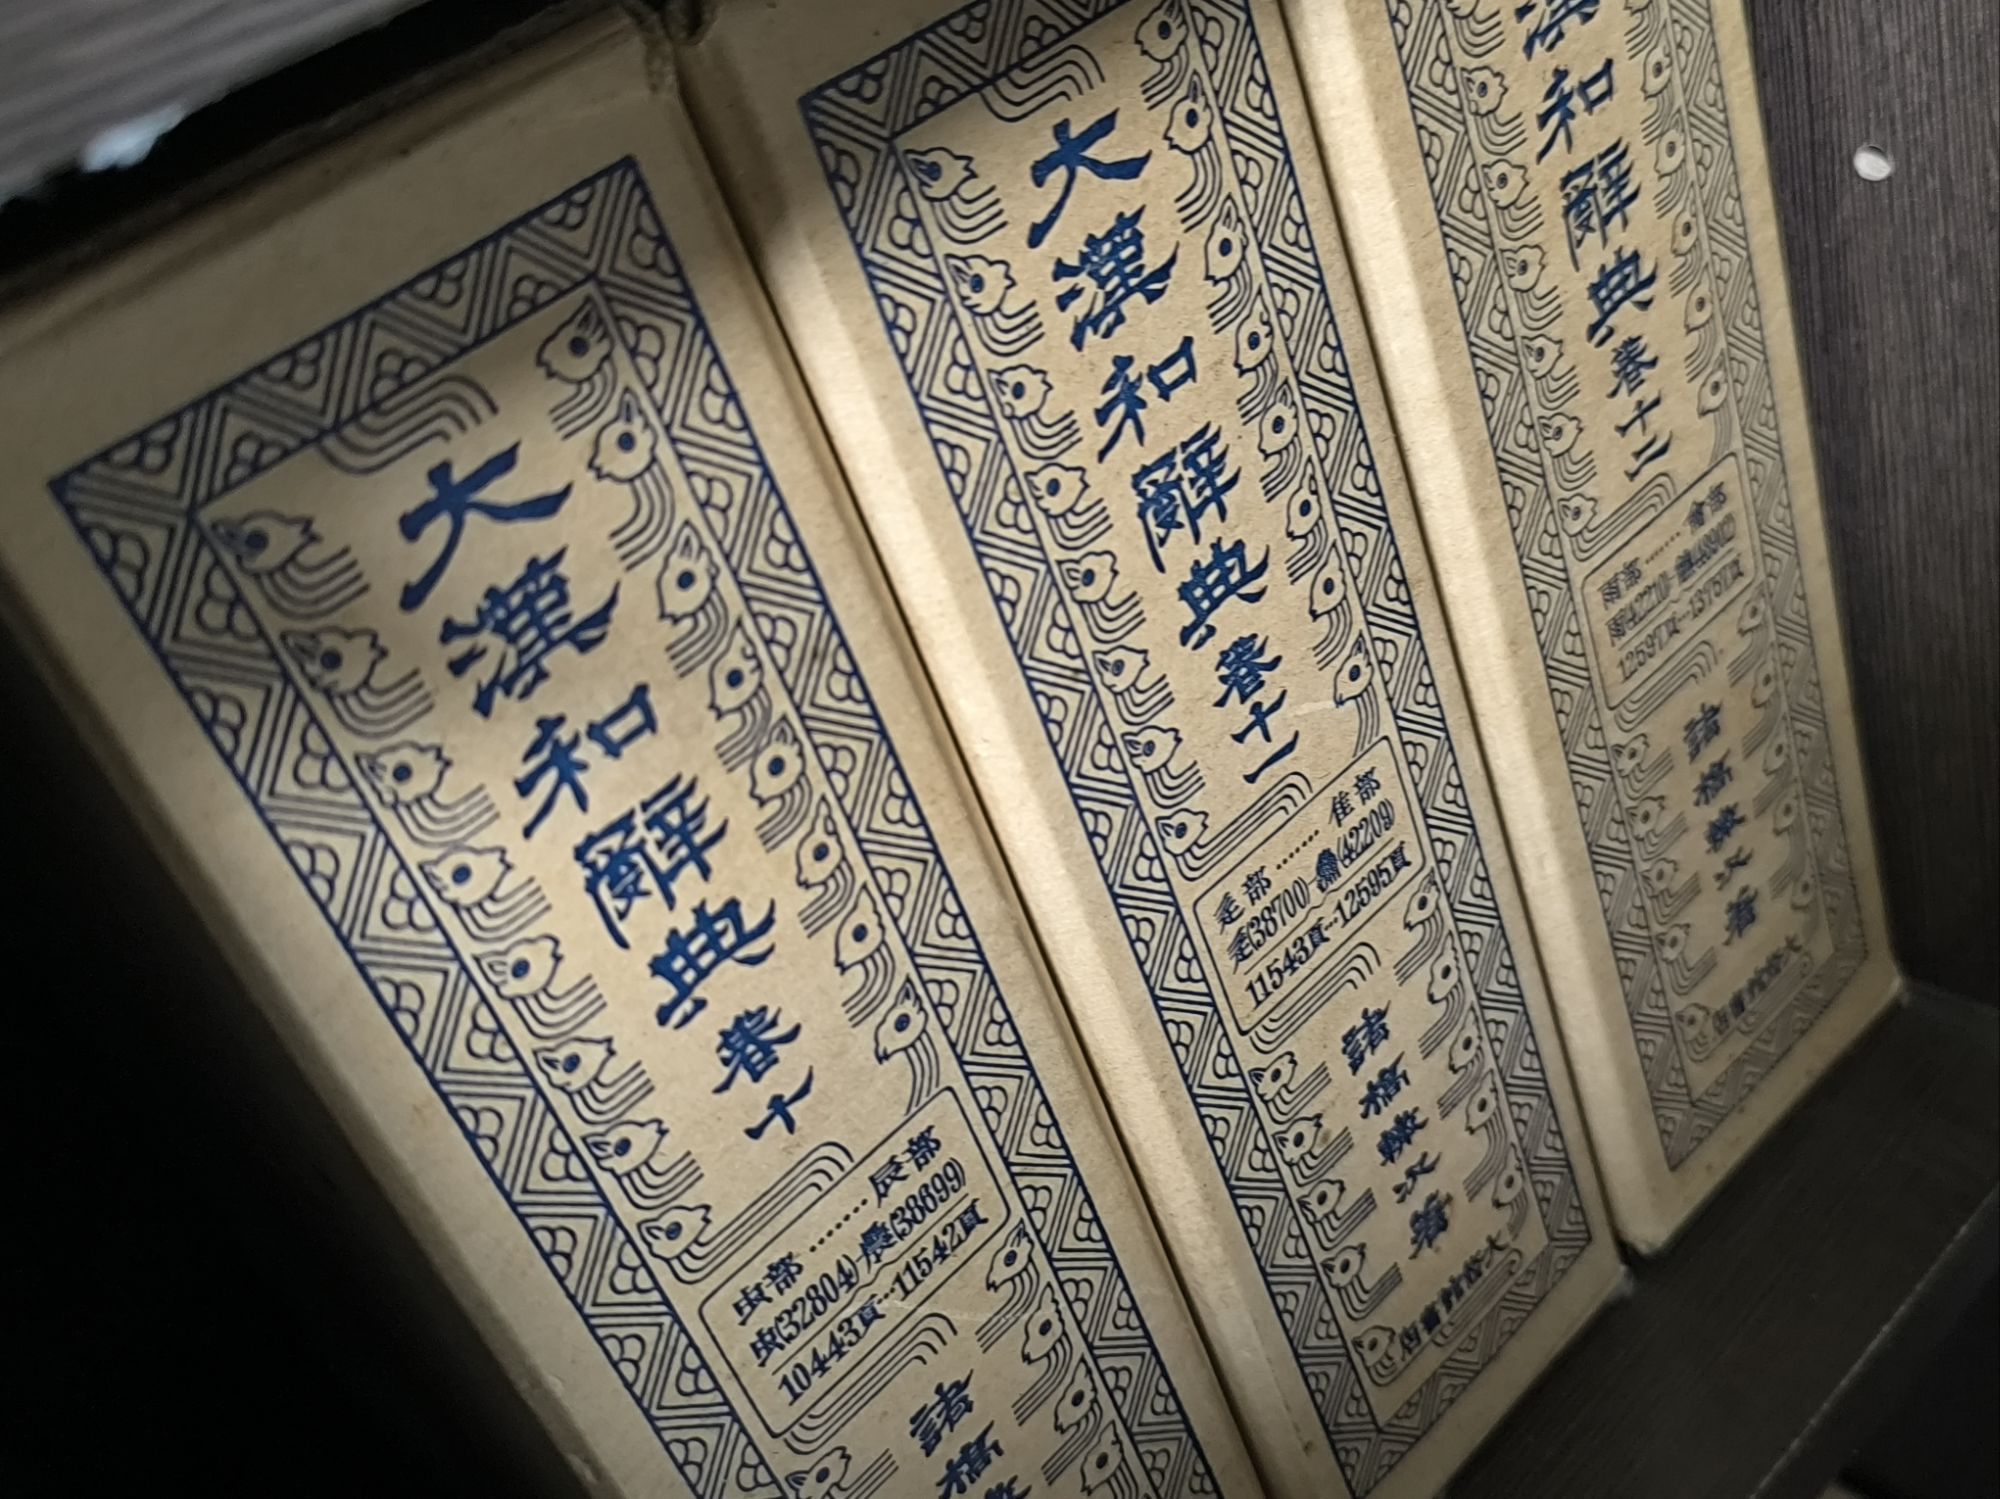 大漢和辭典 卷十
虫部……辰部
虫(32804)-(38699)
10443頁…11542頁
諸橋
大漢和辭典 卷十一
辵部……隹部
辵(38700)-(42209)
11543頁…12595頁
諸橋轍次著
大修館書店
漢和辭典 卷十二
雨部……龠部
雨(42210)-(48902)
12597頁…13757頁
諸橋轍次著
大修館書店